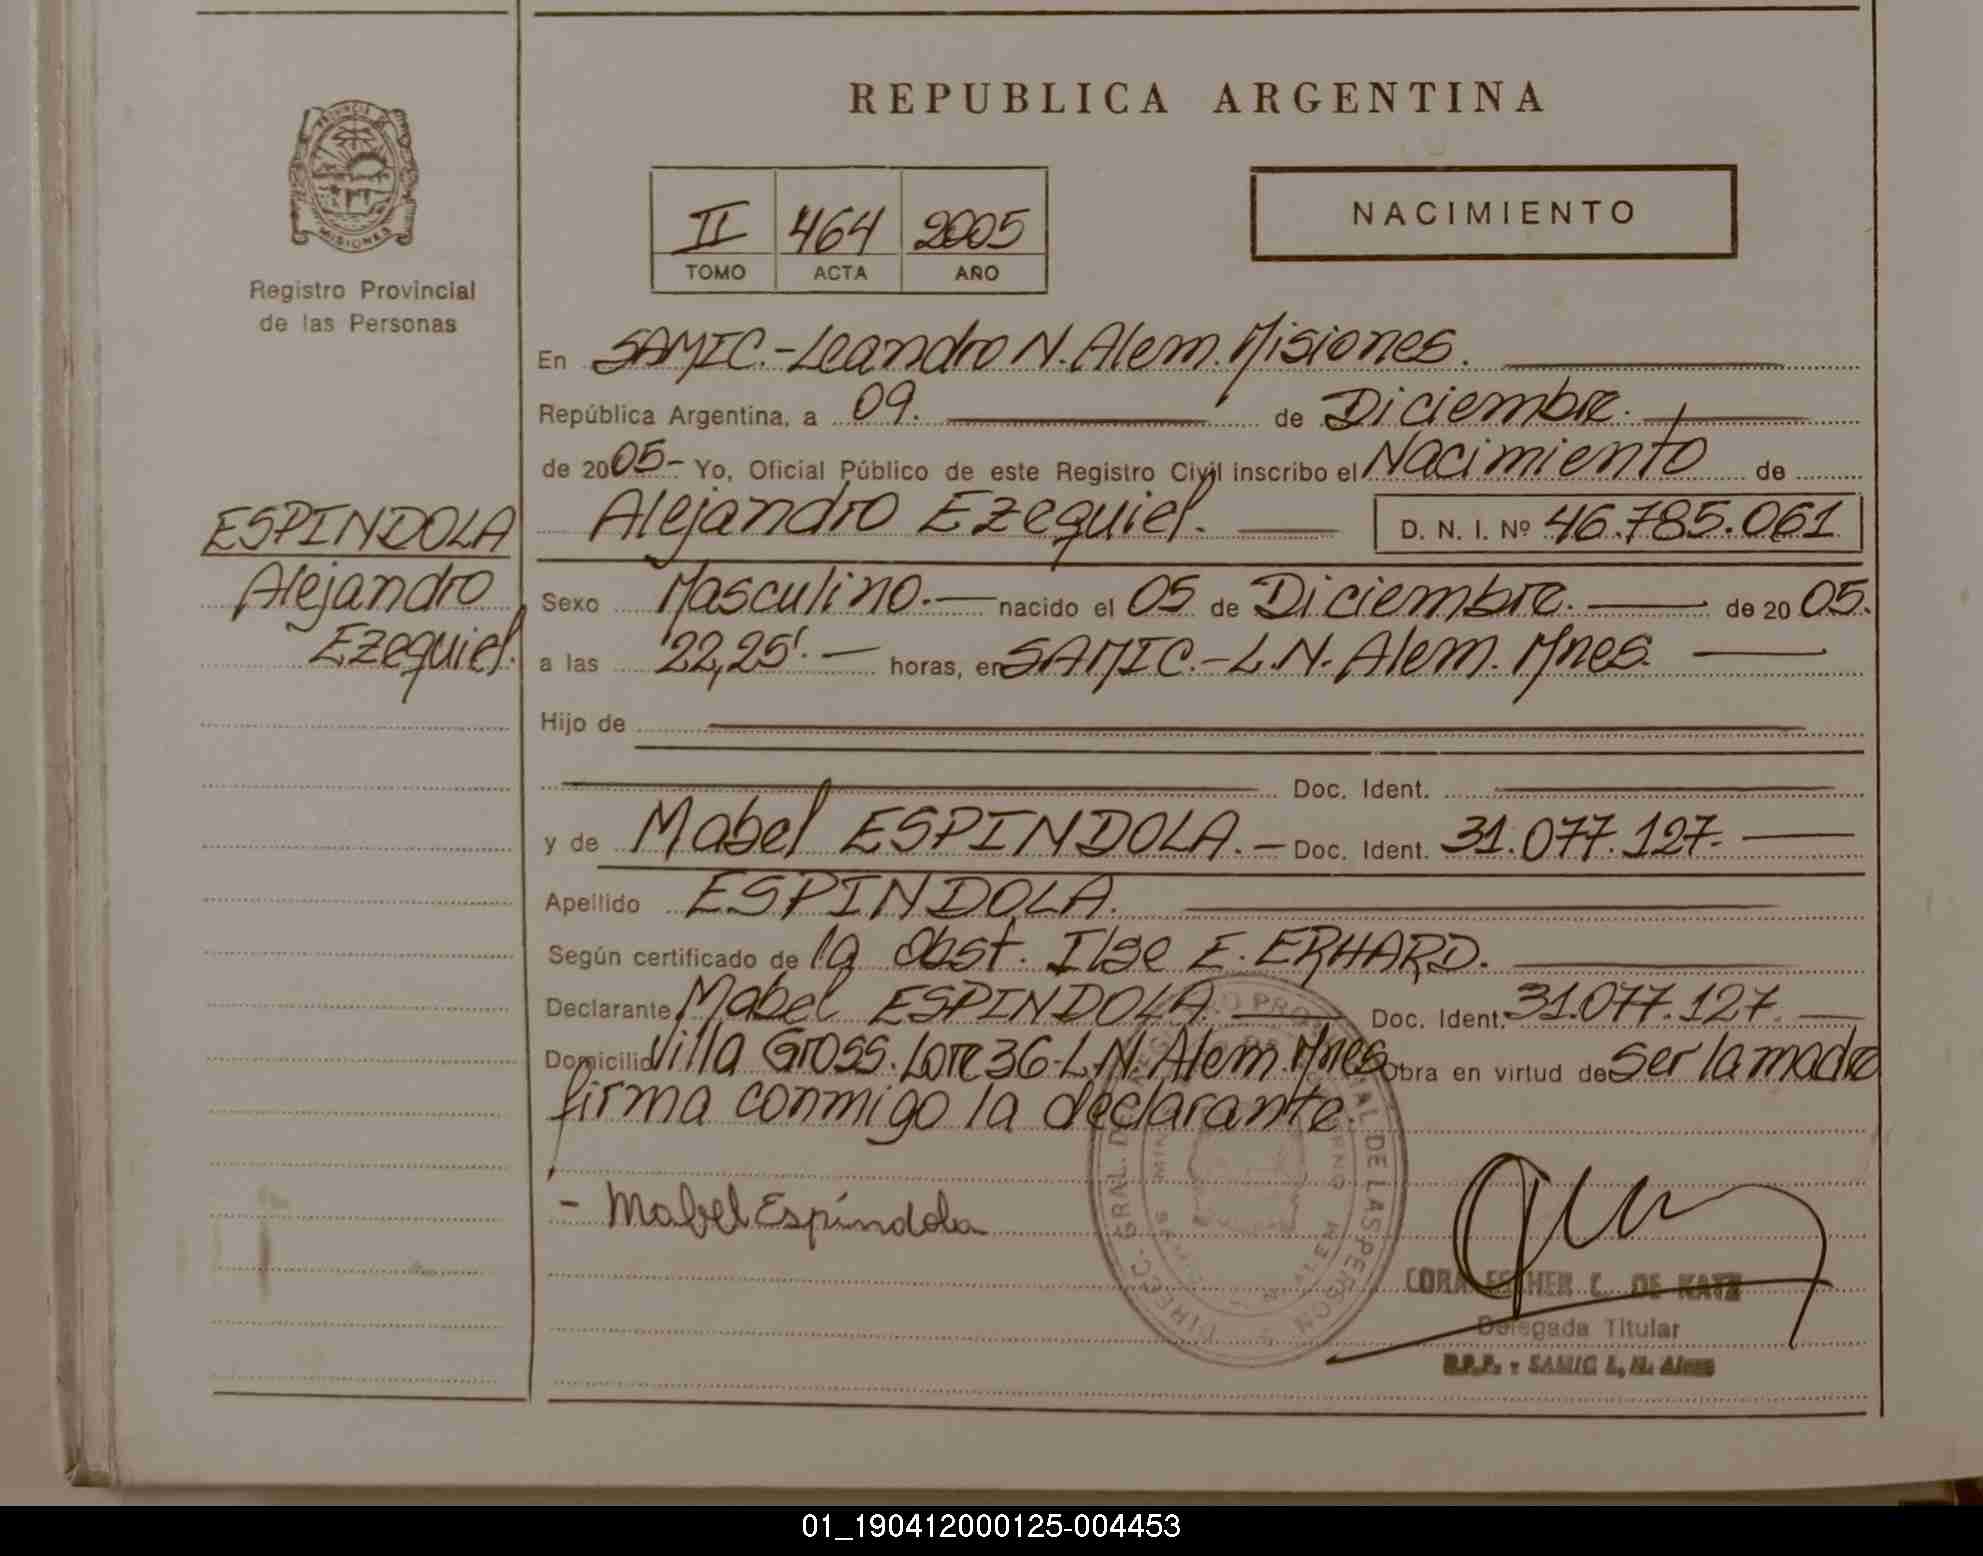 REPUBLICA ARGENTINA
PROVINCIA DE
MISIONES
Registro Provincial
de las Personas
II 464 2005
TOMO ACTA AÑO
NACIMIENTO
En SAMIC.-Leandro N. Alem. Misiones.
República Argentina, a 09. de Diciembre.
de 2005- Yo, Oficial Público de este Registro Civil inscribo el Nacimiento de
Alejandro Ezequiel. D. N. I. Nº 46.785.061
ESPINDOLA
Alejandro
Ezequiel.
Sexo Masculino.- nacido el 05 de Diciembre. de 2005.
a las 22,25'. horas, en SAMIC.-L.N. Alem. Mnes.
Hijo de
Doc. Ident.
y de Mabel ESPINDOLA.- Doc. Ident. 31.077.127.
Apellido ESPINDOLA.
Según certificado de la Obst. Ilse E. ERHARD.
Declarante Mabel ESPINDOLA. Doc. Ident. 31.077.127.
Domicilio Villa Gross. Lote 36-L.N. Alem. Mnes. Obra en virtud de ser la madre
firma conmigo la declarante.
- Mabel Espíndola
CORA ESTHER C. DE KATZ
Delegada Titular
R.P.P. - SAMIC L. N. Alem
01_190412000125-004453